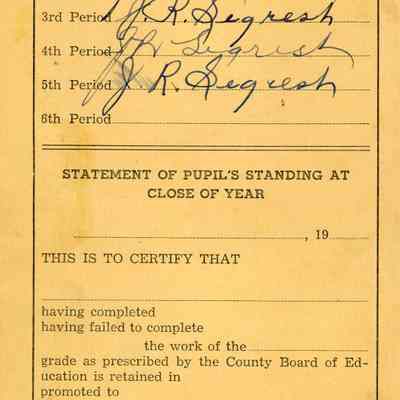 3rd Period J. R. Segresh
4th Period J R Segresh
5th Period J R. Segresh
6th Period
STATEMENT OF PUPIL'S STANDING AT
CLOSE OF YEAR
, 19
THIS IS TO CERTIFY THAT
having completed
having failed to complete
the work of the
grade as prescribed by the County Board of Ed-
ucation is retained in
promoted to